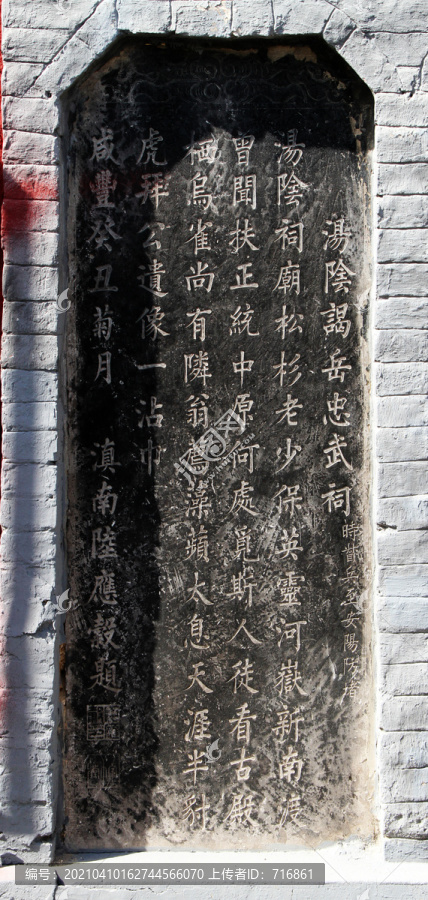 湯陰謁岳忠武祠
湯陰祠廟松杉老少保英靈河嶽新南渡
曾聞扶正統中原何處覓斯人徒看古殿
棲烏雀尚有隣翁薦藻蘋太息天涯半豺
虎拜公遺像一沾巾
咸豐癸丑菊月 滇南陸應穀題
编号:20210410162744566070 上传者ID:716861